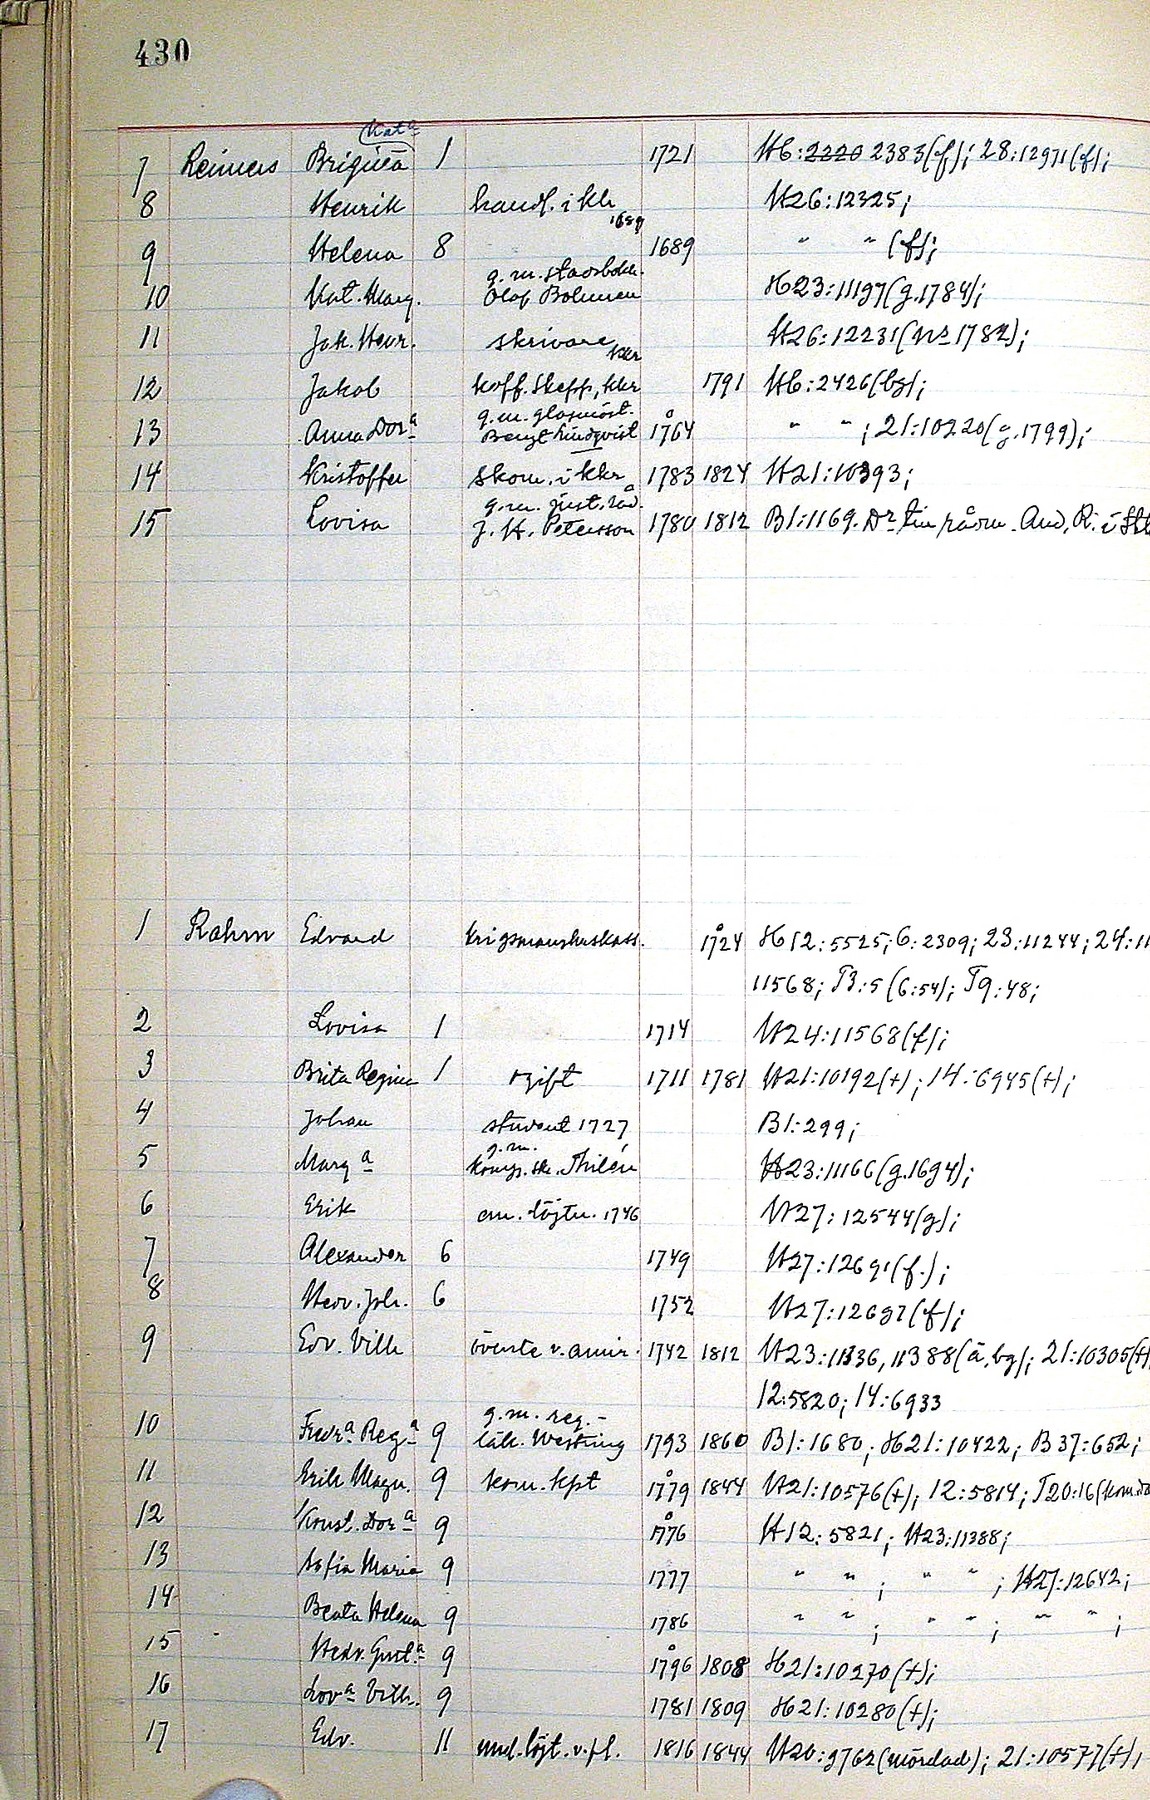 430
Kat.a
7 Reimers Brigitta 1 1721 H6:2220 2383(f); 28:12971(f);
8 Henrik handl. i kkr H26:12325;
1689
9 Helena 8 1689 " " (f);
g.m. stadsbokh.
10 Kat. Marg. Olof Bohman H23:11197(g.1784);
11 Jak. Henr. skrivare H26:12231(
kkr
12 Jakob koff. skepp, kkr 1791 H6:2426(bg);
g.m. glasmäst.
13 Anna Dor.a Bengt Lindqvist 1764 " " ; 21:10220(g.1799);
14 Kristoffer skom. i kkr 1783 1824 H21:10393;
g.m. just. råd.
15 Lovisa J. H. Petersson 1780 1812 B1:1169. Dr
1 Rahm Edvard krigsmanshuskass. 1724 H12:5525; 6:2309; 23:11244; 24:11
11568; T3:5 (6:54); T9:48;
2 Lovisa 1 1714 H24:11568(f);
3 Brita Regina 1 ogift 1711 1781 H21:10192(+); 14:6945(+);
4 Johan student 1727 B1:299;
g.m.
5 Marg.a komp. skr. Thilén H23:11166(g.1694);
6 Erik am. löjtn. 1746 H27:12544(g);
7 Alexander 6 1749 H27:12691(f.);
8 Hedv. Joh. 6 1752 H27:12697(f);
9 Edv. Vilh överste v. amir. 1742 1812 H23:11336, 11388(ä, bg); 21:10305(+)
12:5820; 14:6933
g.m. reg.-
10 Fredr.a Reg.a 9 läk. Westring 1793 1860 B1:1680; H21:10422; B37:652;
11 Erik Magn. 9 kom. kpt 1779 1844 H21:10576(+); 12:5814; T20:16(
12 Konst. Dor.a 9 1776 H12:5821; H23:11388;
13 Sofia Maria 9 1777 " " ; " " ; H27:12642;
14 Beata Helena 9 1786 " " ; " " ; " " ;
15 Hedv. Gust.a 9 1796 1808 H21:10270(+);
16 Lov.a Vilh. 9 1781 1809 H21:10280(+);
17 Edv. 11 und. löjt. v. fl. 1816 1844 H20:9762(mördad); 21:10577(+),